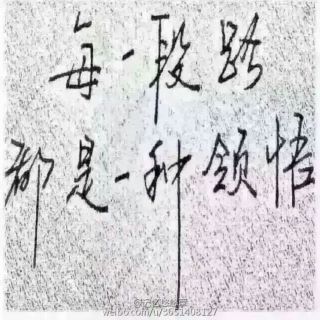 每一段路
都是一种领悟
weibo.com/u/3651408127